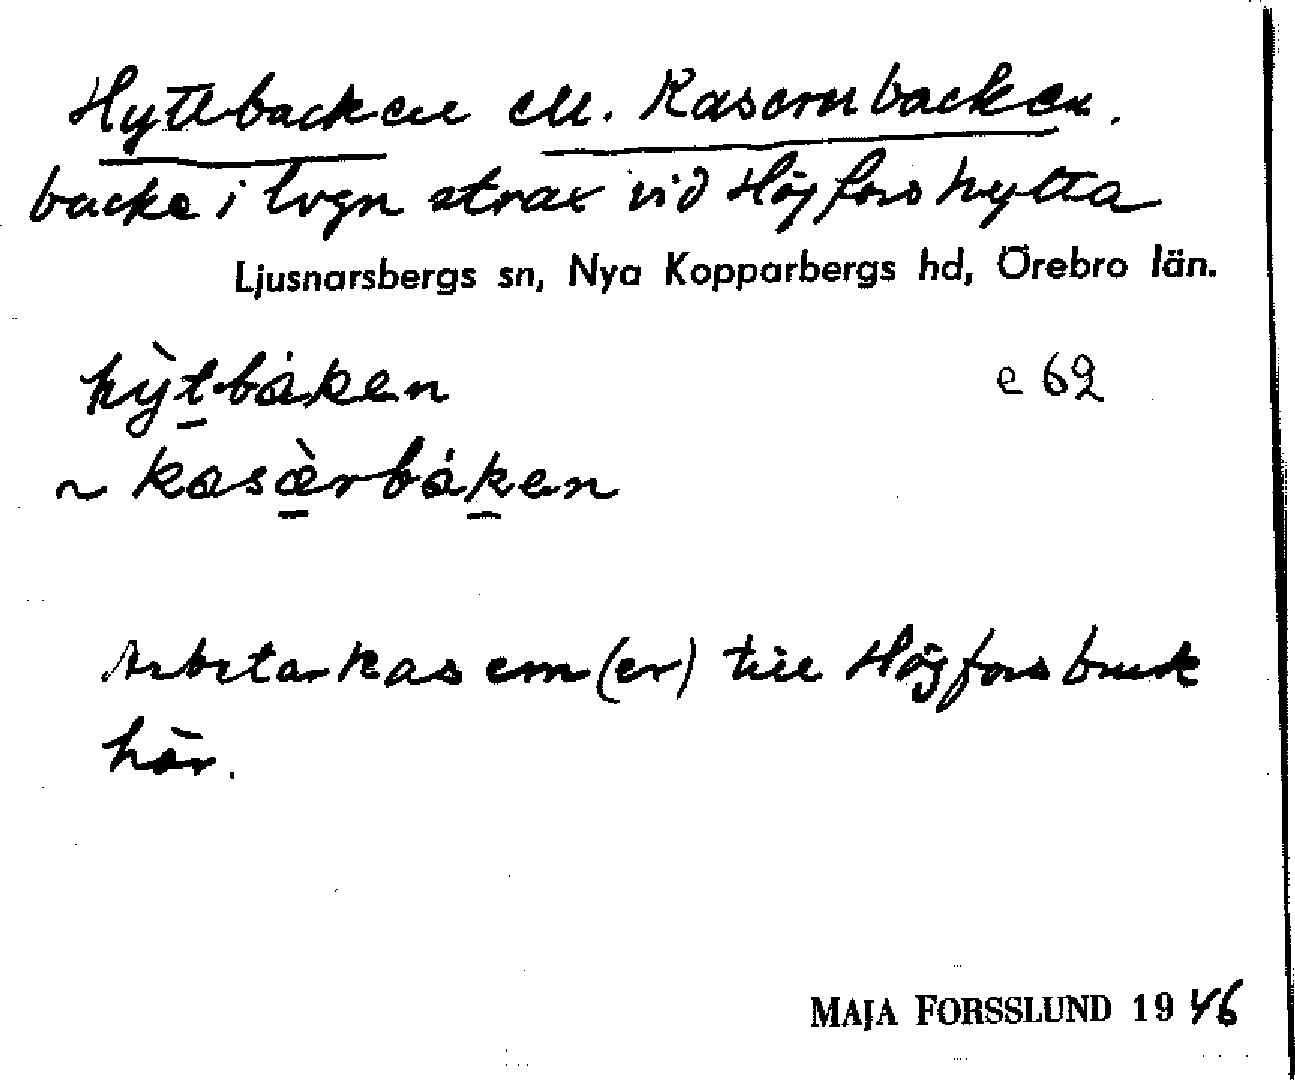 Hyttbacken ell. Kasernbacken.
backe i lvgn strax vid Högfors hytta
Ljusnarsbergs sn, Nya Kopparbergs hd, Örebro län.
hỳt-båken e 62
~ kasèrbåken
Arbetarkasern(er) till Högfors bruk
här.
MAJA FORSSLUND 1946